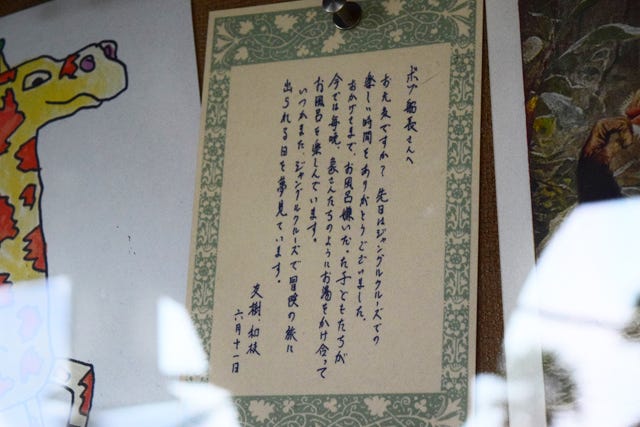 ボブ船長さんへ
お元気ですか？先日はジャングルクルーズでの
楽しい時間をありがとうございました。
おかげさまで、お風呂嫌いだった子どもたちが
今では毎晩、象さんたちのようにお湯をかけ合って
お風呂を楽しんでいます。
いつかまた、ジャングルクルーズで冒険の旅に
出られる日を夢見ています。
六月十一日